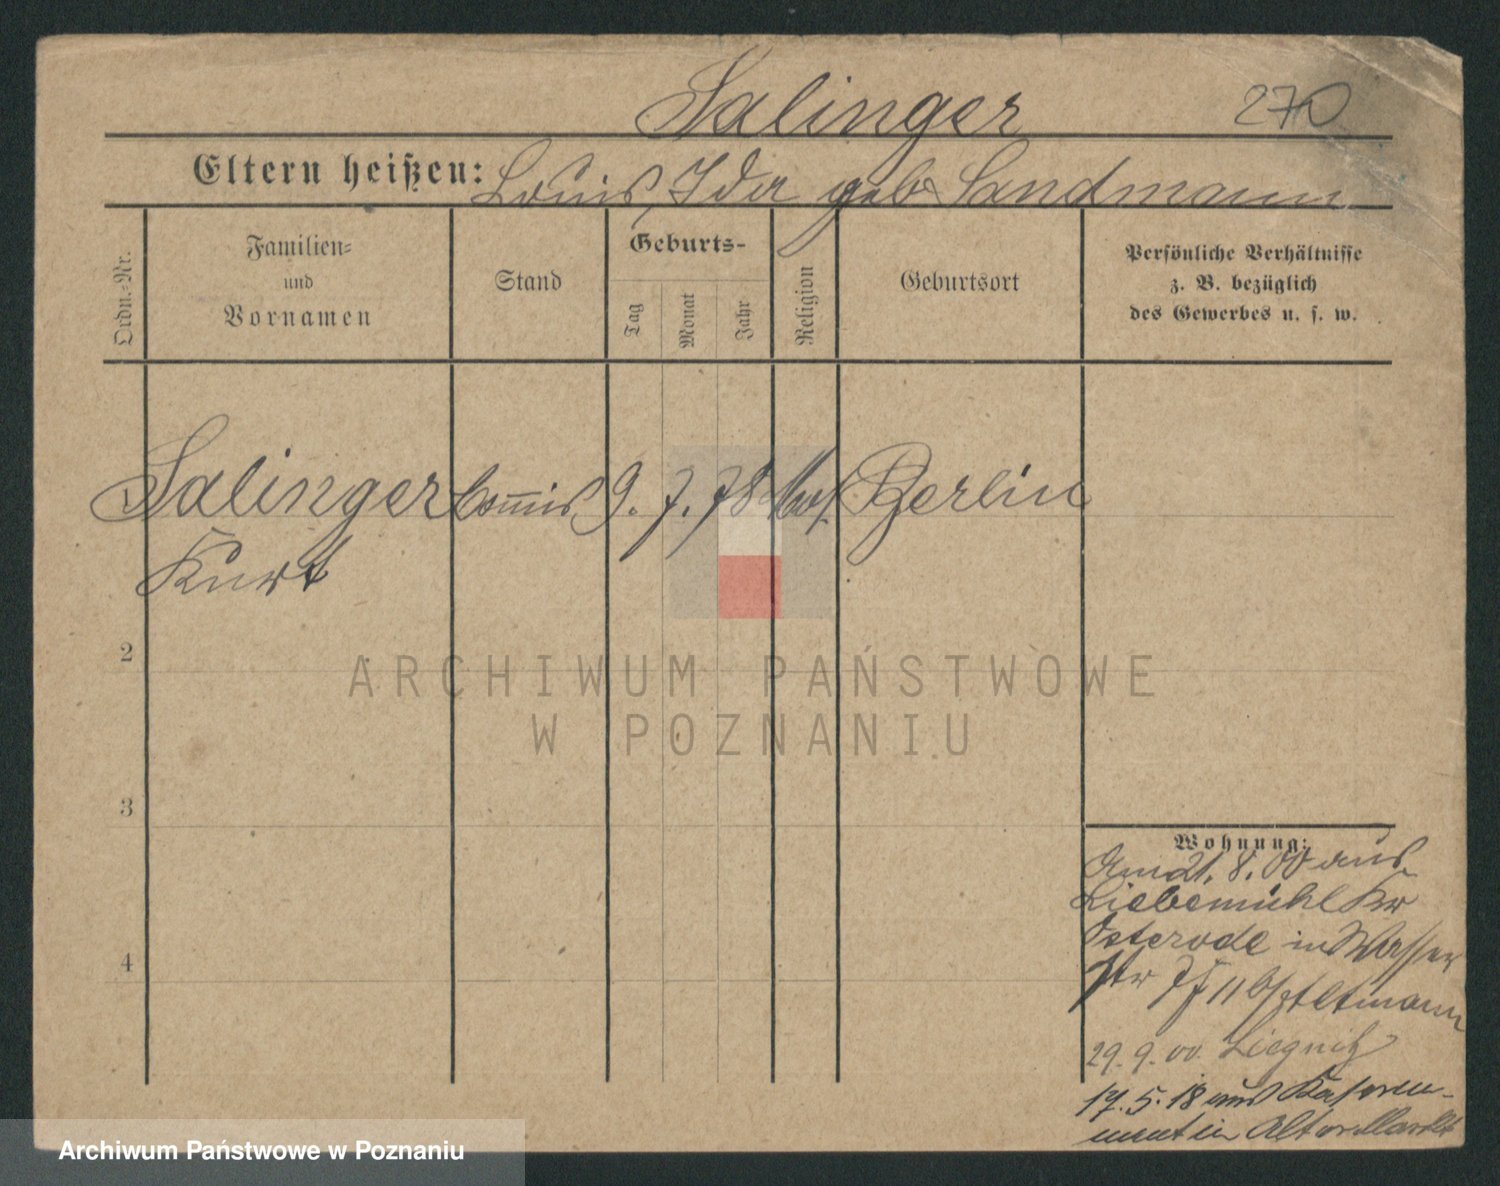 Salinger 270
Eltern heißen: Louis, Ida geb Sandmann
Ordn.-Nr.
Familien-
und
Vornamen
Stand
Geburts-
Tag
Monat
Jahr
Religion
Geburtsort
Persönliche Verhältnisse
z. B. bezüglich
des Gewerbes u. s. w.
1 Salinger Commis 9. 7. 78 Mos. Berlin
Kurt
2
3
4
ARCHIWUM PAŃSTWOWE
W POZNANIU
Wohnung:
Am 21. 8. 00 aus
Liebemühl Kr
Osterode in Wasser
Str II b/
29. 9. 00. Liegnitz
17. 5. 18 aus
in Alter Markt
Archiwum Państwowe w Poznaniu